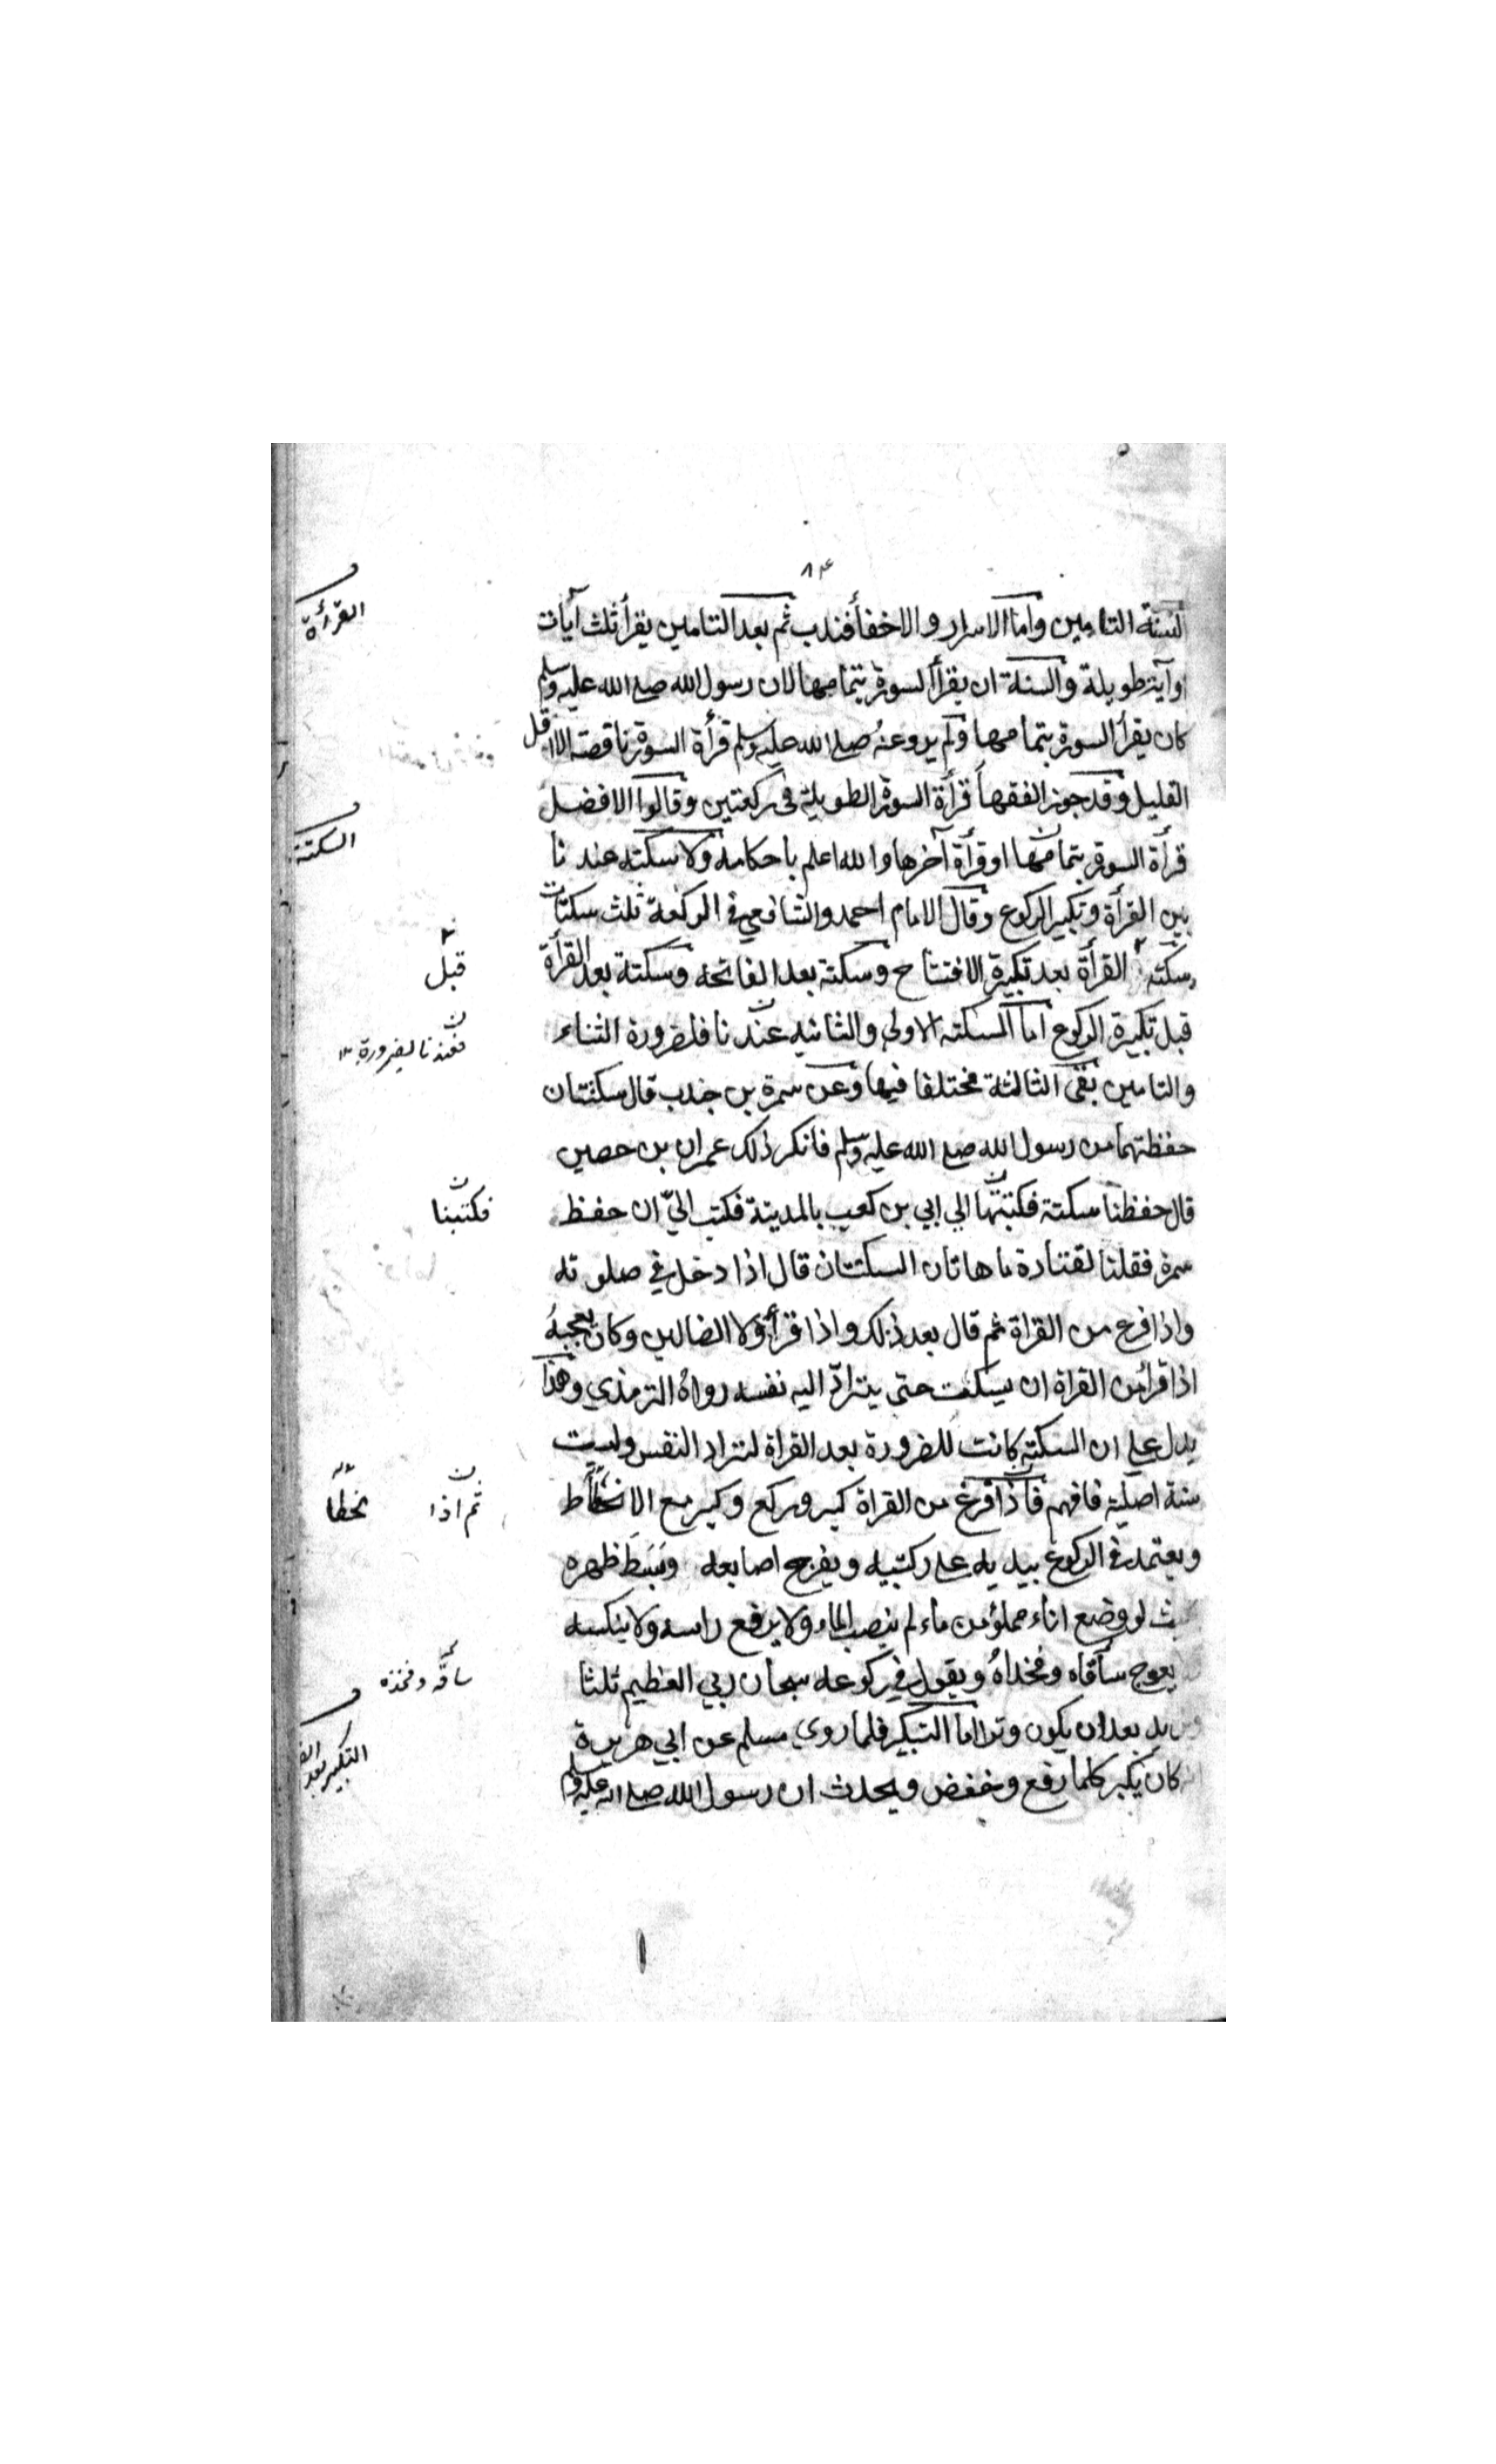 ٨٣
لسنة التامين واما الاسرار والاخفأ فندب ثم بعد التامين يقرأ ثلث آيات
اوآية طويلة والسنة ان يقرأ السورة بتمامها لان رسول الله صلع الله عليه وسلم
كان يقرأ السورة بتمامها ولم يرو عنهُ صلع الله عليه وسلم قرأة السورة ناقصة الا اقل
القليل وقد جوز الفقهأ قرأة السورة الطويلة فى ركعتين وقالوا الافضل
قرأة السورة بتمامها اوقرأة آخرها والله اعلم باحكامه ولا سكته عند نا
بين القرأة وتكبير الركوع وقال الامام احمد والشافعي في الركعة ثلث سكتات
سكته القرأة بعد تكبيرة الافتتاح وسكتة بعد الفاتحه وسكتة بعد القرأة
قبل تكبيرة الركوع اما السكته الاولي والثانيه عند نا فلضرورة الثناء
والتامين بقى الثالثة مختلفا فيها وعن سمرة بن جندب قال سكتتان
حفظتهما من رسول الله صلع الله عليه وسلم فانكر ذلك عمران بن حصين
قال حفظنا سكتة فكتبتها الي ابي بن كعب بالمدينة فكتب اليّ ان حفظ
سمرة فقلنا لقتادة ما هاتان السكتتان قال اذا دخل في صلوته
واذا فرع من القراة ثم قال بعد ذلك واذا قرأ ولا الضالين وكان يعجبهُ
اذا قرأ من القراة ان يسكت حتى يترادّ اليه نفسه رواهُ الترمذي وهذا
يدل علي ان السكته كانت للضرورة بعد القراة لتراد النفس وليست
سنة اصلية فافهم فاذا فرغ من القراة كبر وركع وكبر مع الانحطاط
ويعتمد في الركوع بيديه علي ركبتيه ويفرج اصابعه وبَسَط ظهره
لو وضع اناء مملؤ من ماء لم ينصب الماء ولا يرفع راسه ولا ينكسه
يعوج ساقاه وفخداهُ ويقول في ركوعه سبحان ربي العظيم ثلثا
بعد ان يكون وترا اما التكبير فلما روي مسلم عن ابي هريرة
كان يكبر كلما رفع وخفض ويحدث ان رسول الله صلع الله عليه وسلم
القرأة
السكتة
قبل
فعند نا لضرورة ١٢
فكتبنا
ثم اذا
نحطا
ساقه وفخذه
التكبير بعد